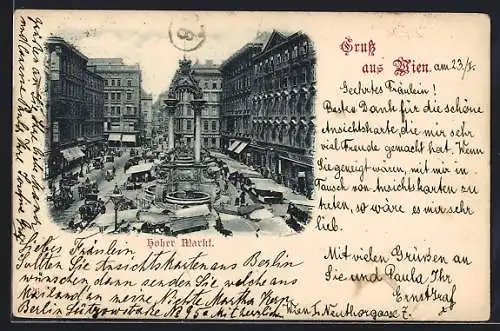 Gruß
aus Wien.
am 23/
Geehrtes Fräulein!
Besten Dank für die schöne
Ansichtskarte die mir sehr
viel Freude gemacht hat. Wenn
Sie geneigt wären, mit mir in
Tausch von Ansichtskarten zu
treten, so wäre es mir sehr
lieb.
Mit vielen Grüßen an
Sie und Paula Ihr
Ernst
Wien I. Neuthorgasse 7.
Hoher Markt.
Liebes Fräulein
Sollten Sie Ansichtskarten aus Berlin
wünschen dann senden Sie welche aus
Mailand an meine Nichte Martha
Berlin Lützowstraße Mit herzlichen
Grüßen